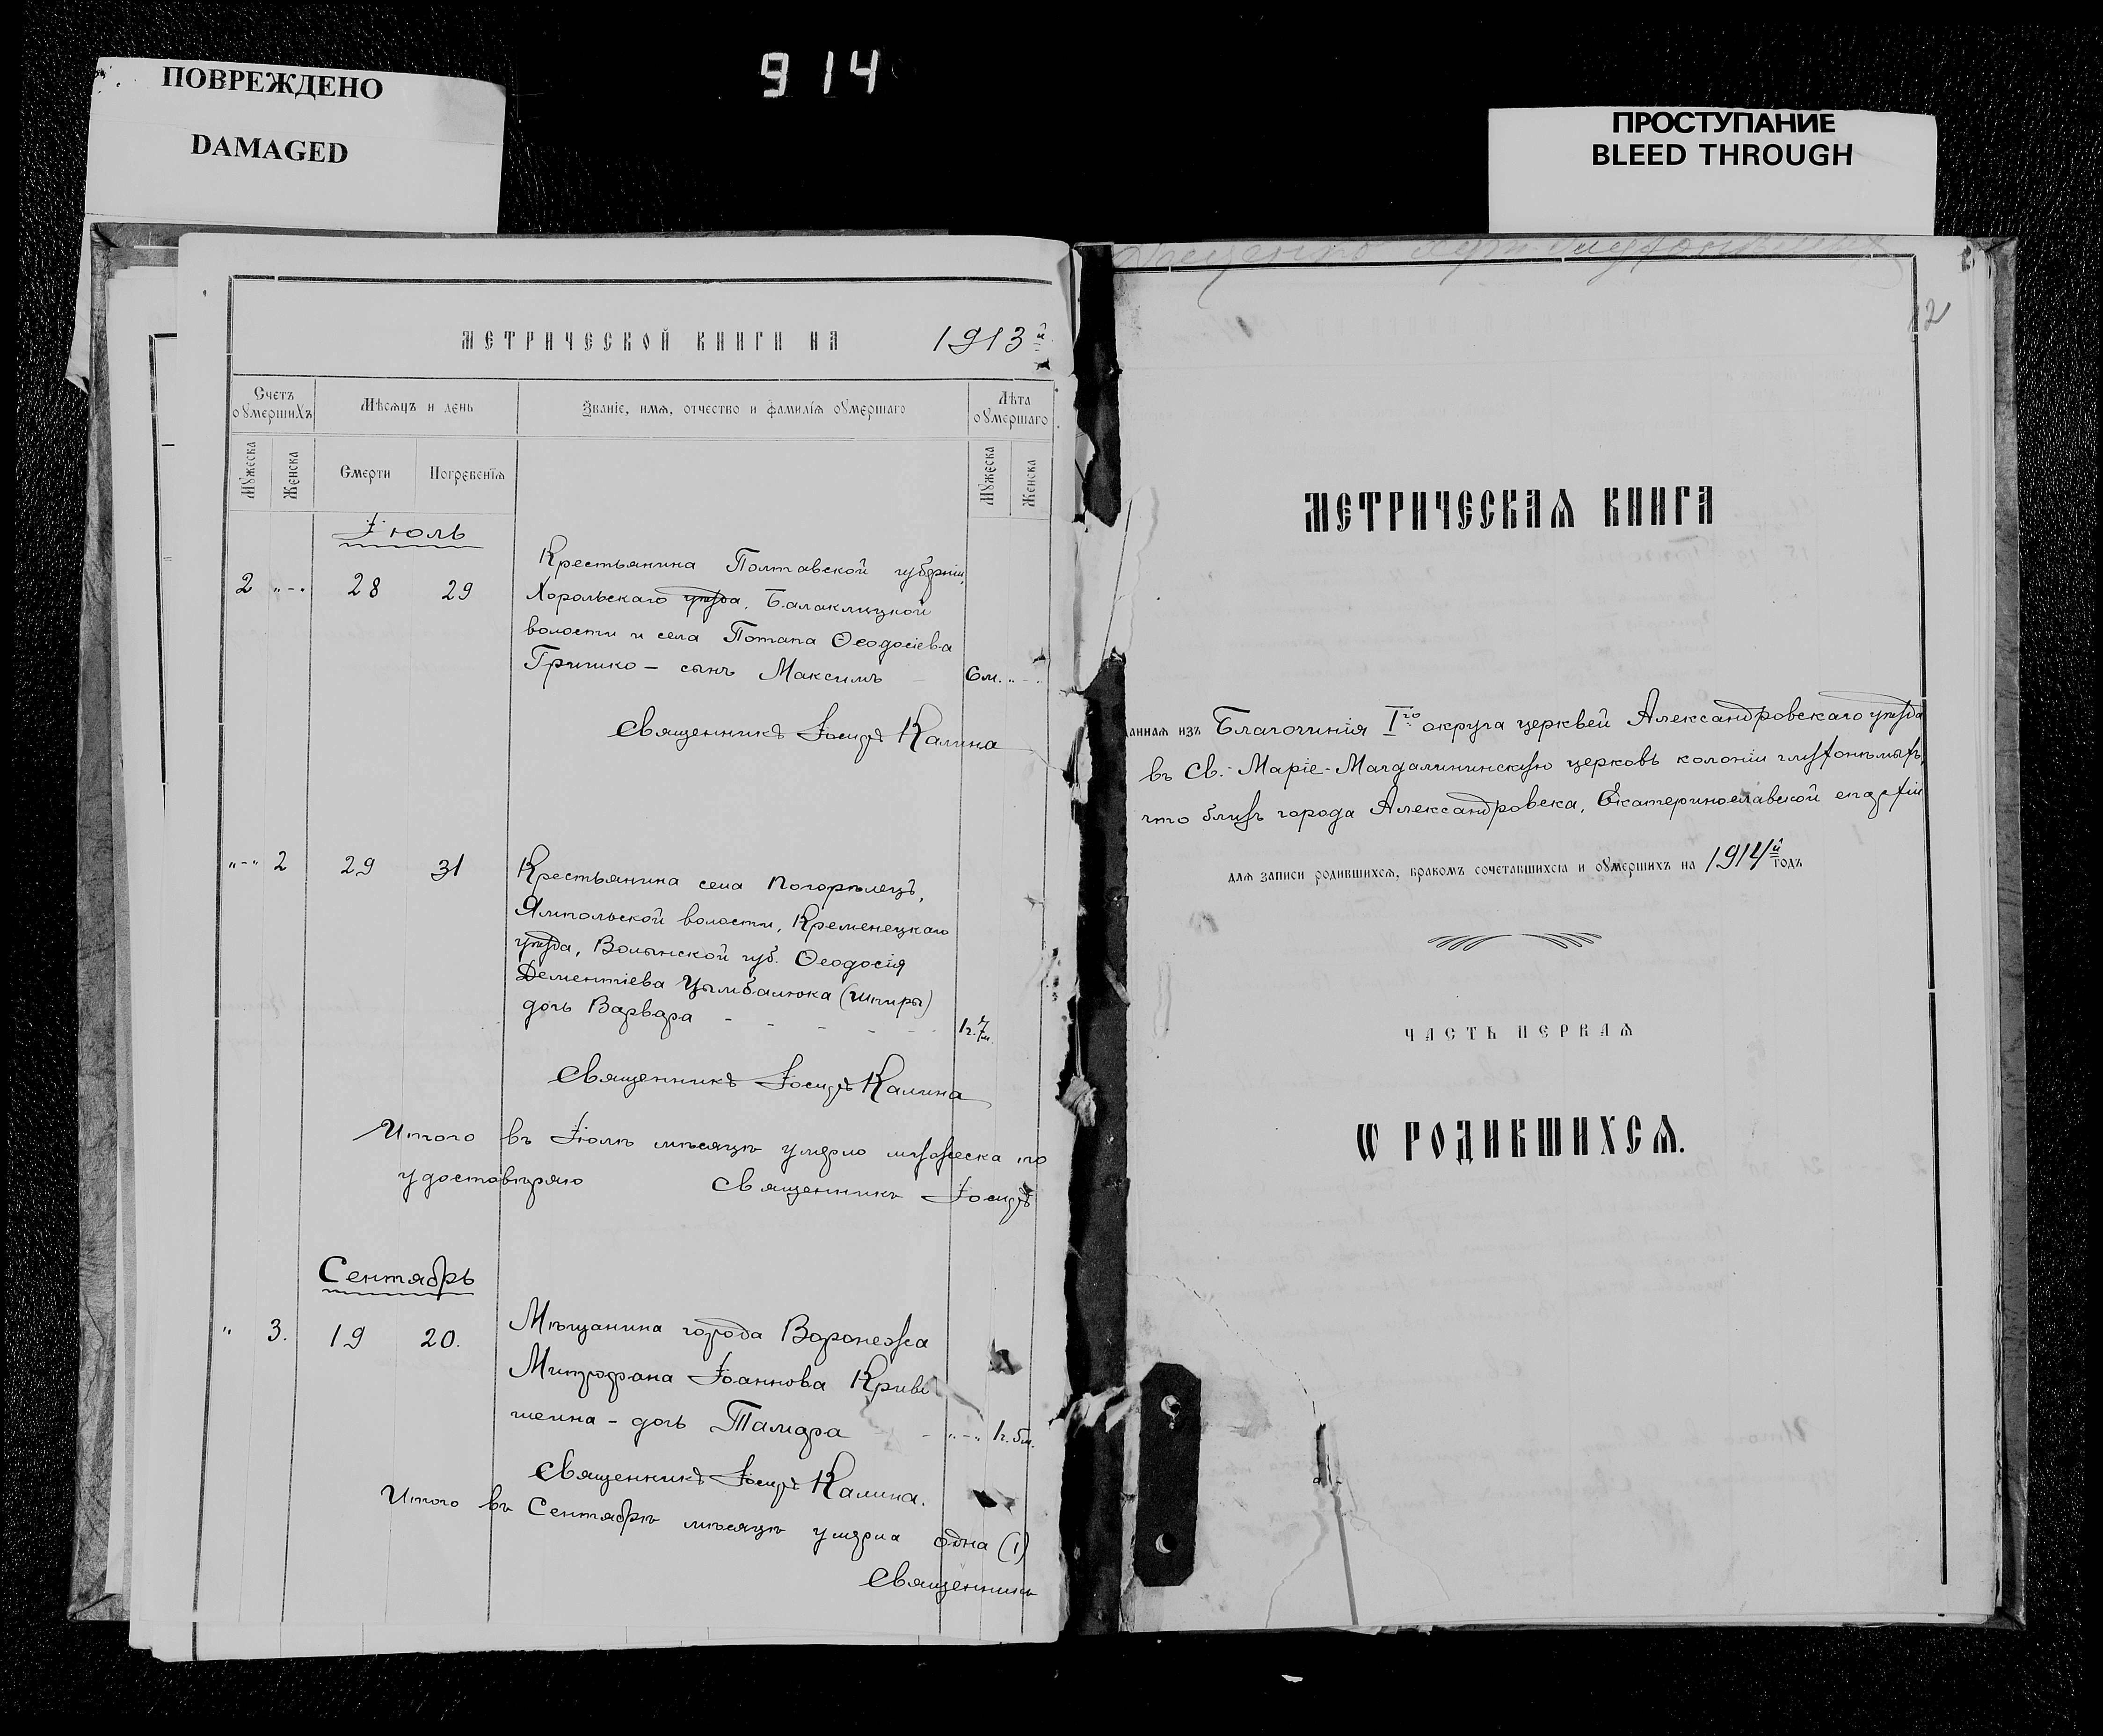 914
ПОВРЕЖДЕНО
DAMAGED
ПРОСТУПАНИЕ
BLEED THROUGH
МЕТРИЧЕСКОЙ КНИГИ НА 1913й
Счетъ оумершихъ
Мѣсяцъ и день
Званіе, имя, отчество и фамилія оумершаго
Лѣта оумершаго
Мужеска
Женска
Смерти
Погребенія
Мужеска
Женска
Іюль
2 „-„ 28 29
Крестьянина Полтавской губерніи,
Хорольскаго уѣзда, Балаклицкой
волости и села Потапа Ѳеодосіева
Гришко – сынъ Максимъ – 6м. „-„
Священникъ Іосифъ Калина
„-„ 2 29 31
Крестьянина села Погорѣлецъ,
Ямпольской волости, Кременецкаго
уѣзда, Волынской губ. Ѳеодосія
Дементіева Цымбалюка (Шпиры)
дочь Варвара - - - - - 1г. 7м.
Священникъ Іосифъ Калина
Итого въ Іюлѣ мѣсяцѣ умерло мужеска по
удостовѣряю Священникъ Іосифъ
Сентябрь
„ 3. 19 20.
Мѣщанина города Воронежа
Митрофана Іоаннова Криво
шеина – дочь Тамара - „-„ 1г. 5м.
Священникъ Іосифъ Калина.
Итого въ Сентябрѣ мѣсяцѣ умерла одна (1)
Священникъ
12
МЕТРИЧЕСКАЯ КНИГА
данная изъ Благочинія I го округа церквей Александровскаго уѣзда
въ Св.-Маріе-Магдалининскую церковь колоніи глухонѣмыхъ,
что близъ города Александровска, Екатеринославской епархіи
для записи родившихся, бракомъ сочетавшихся и оумершихъ на 1914й годъ
ЧАСТЬ ПЕРВАЯ
Ѡ РОДИВШИХСЯ.